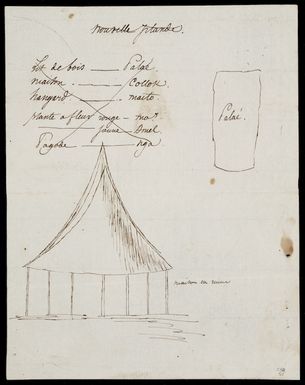 Nouvelle Irlande.
Lit de bois — Palaé.
maison — Cottok
hangard — maito.
plante a fleur rouge — mo
jaune — Amel
Pagode — nga
Palaé.
maison en ruine